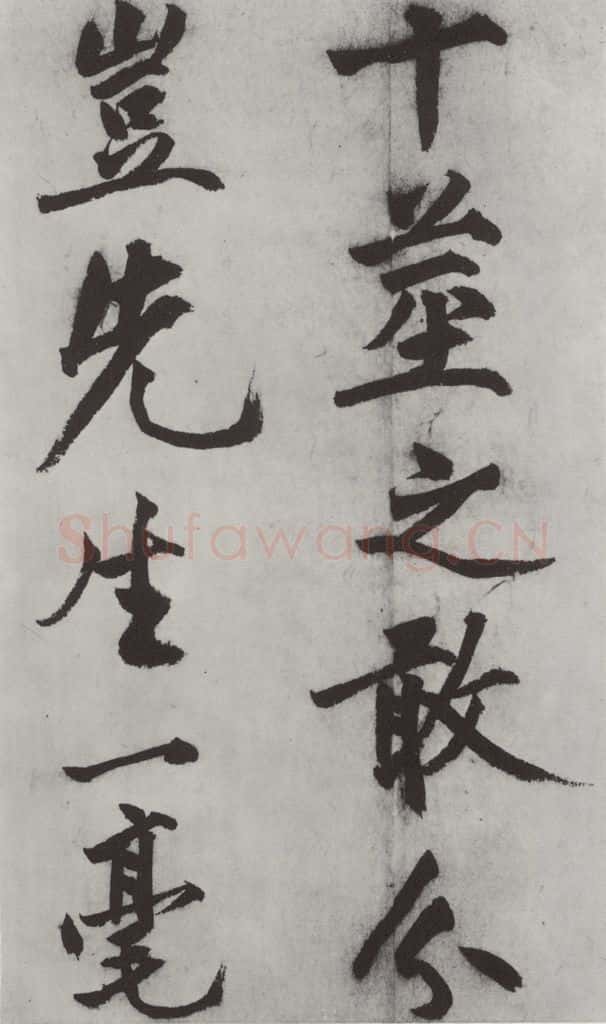 十莖之敢分
豈先生一毫
Shufawang.CN